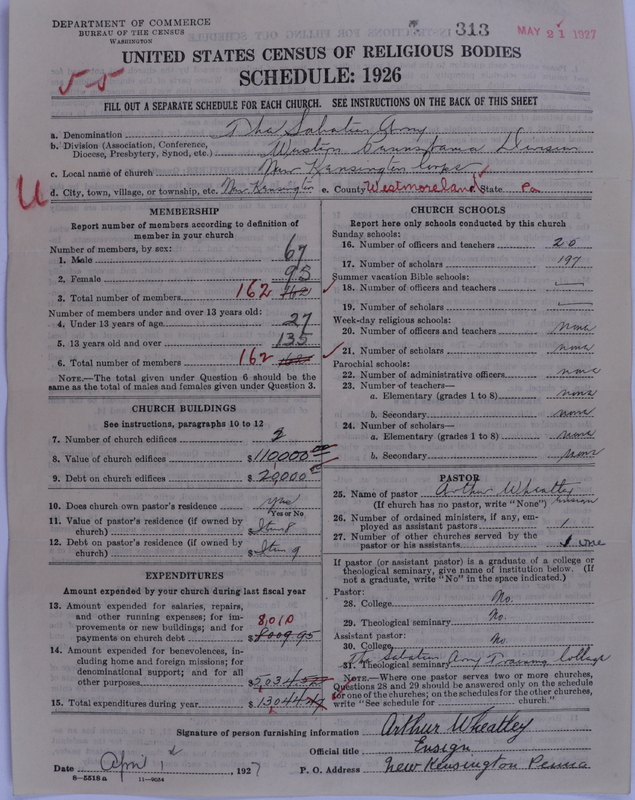 DEPARTMENT OF COMMERCE
BUREAU OF THE CENSUS
WASHINGTON
313
MAY 21 1927
UNITED STATES CENSUS OF RELIGIOUS BODIES
SCHEDULE: 1926
55
FILL OUT A SEPARATE SCHEDULE FOR EACH CHURCH. SEE INSTRUCTIONS ON THE BACK OF THIS SHEET
a. Denomination The Salvation Army
b. Division (Association, Conference, Diocese, Presbytery, Synod, etc.) Western Pennsylvania Division
c. Local name of church New Kensington Corps
U
d. City, town, village, or township, etc. New Kensington e. County Westmoreland State Pa
MEMBERSHIP
Report number of members according to definition of member in your church
Number of members, by sex:
1. Male 67
2. Female 95
3. Total number of members 162 162
Number of members under and over 13 years old:
4. Under 13 years of age 27
5. 13 years old and over 135
6. Total number of members 162
NOTE.—The total given under Question 6 should be the same as the total of males and females given under Question 3.
CHURCH BUILDINGS
See instructions, paragraphs 10 to 12
7. Number of church edifices 2
8. Value of church edifices $110000 00
9. Debt on church edifices $20,000
10. Does church own pastor's residence yes
(Yes or No)
11. Value of pastor's residence (if owned by church) $ Item 8
12. Debt on pastor's residence (if owned by church) $ Item 9
EXPENDITURES
Amount expended by your church during last fiscal year
13. Amount expended for salaries, repairs, and other running expenses; for improvements or new buildings; and for payments on church debt 8,010 $8009.95
14. Amount expended for benevolences, including home and foreign missions; for denominational support; and for all other purposes $5,034
15. Total expenditures during year $13044
CHURCH SCHOOLS
Report here only schools conducted by this church
Sunday schools:
16. Number of officers and teachers 20
17. Number of scholars 197
Summer vacation Bible schools:
18. Number of officers and teachers —
19. Number of scholars —
Week-day religious schools:
20. Number of officers and teachers none
21. Number of scholars none
Parochial schools:
22. Number of administrative officers none
23. Number of teachers—
a. Elementary (grades 1 to 8) none
b. Secondary none
24. Number of scholars—
a. Elementary (grades 1 to 8) none
b. Secondary none
PASTOR
25. Name of pastor Arthur Wheatley
(If church has no pastor, write "None")
26. Number of ordained ministers, if any, employed as assistant pastors 1
27. Number of other churches served by the pastor or his assistants none
If pastor (or assistant pastor) is a graduate of a college or theological seminary, give name of institution below. (If not a graduate, write "No" in the space indicated.)
Pastor:
28. College No.
29. Theological seminary No
Assistant pastor:
30. College No
31. Theological seminary The Salvation Army Training College
NOTE.—Where one pastor serves two or more churches, Questions 28 and 29 should be answered only on the schedule for one of the churches; on the schedules for the other churches, write "See schedule for ........ church."
Signature of person furnishing information Arthur Wheatley
Official title Ensign
Date April 1, 1927 P. O. Address New Kensington Penna
8-5518a 11-9034